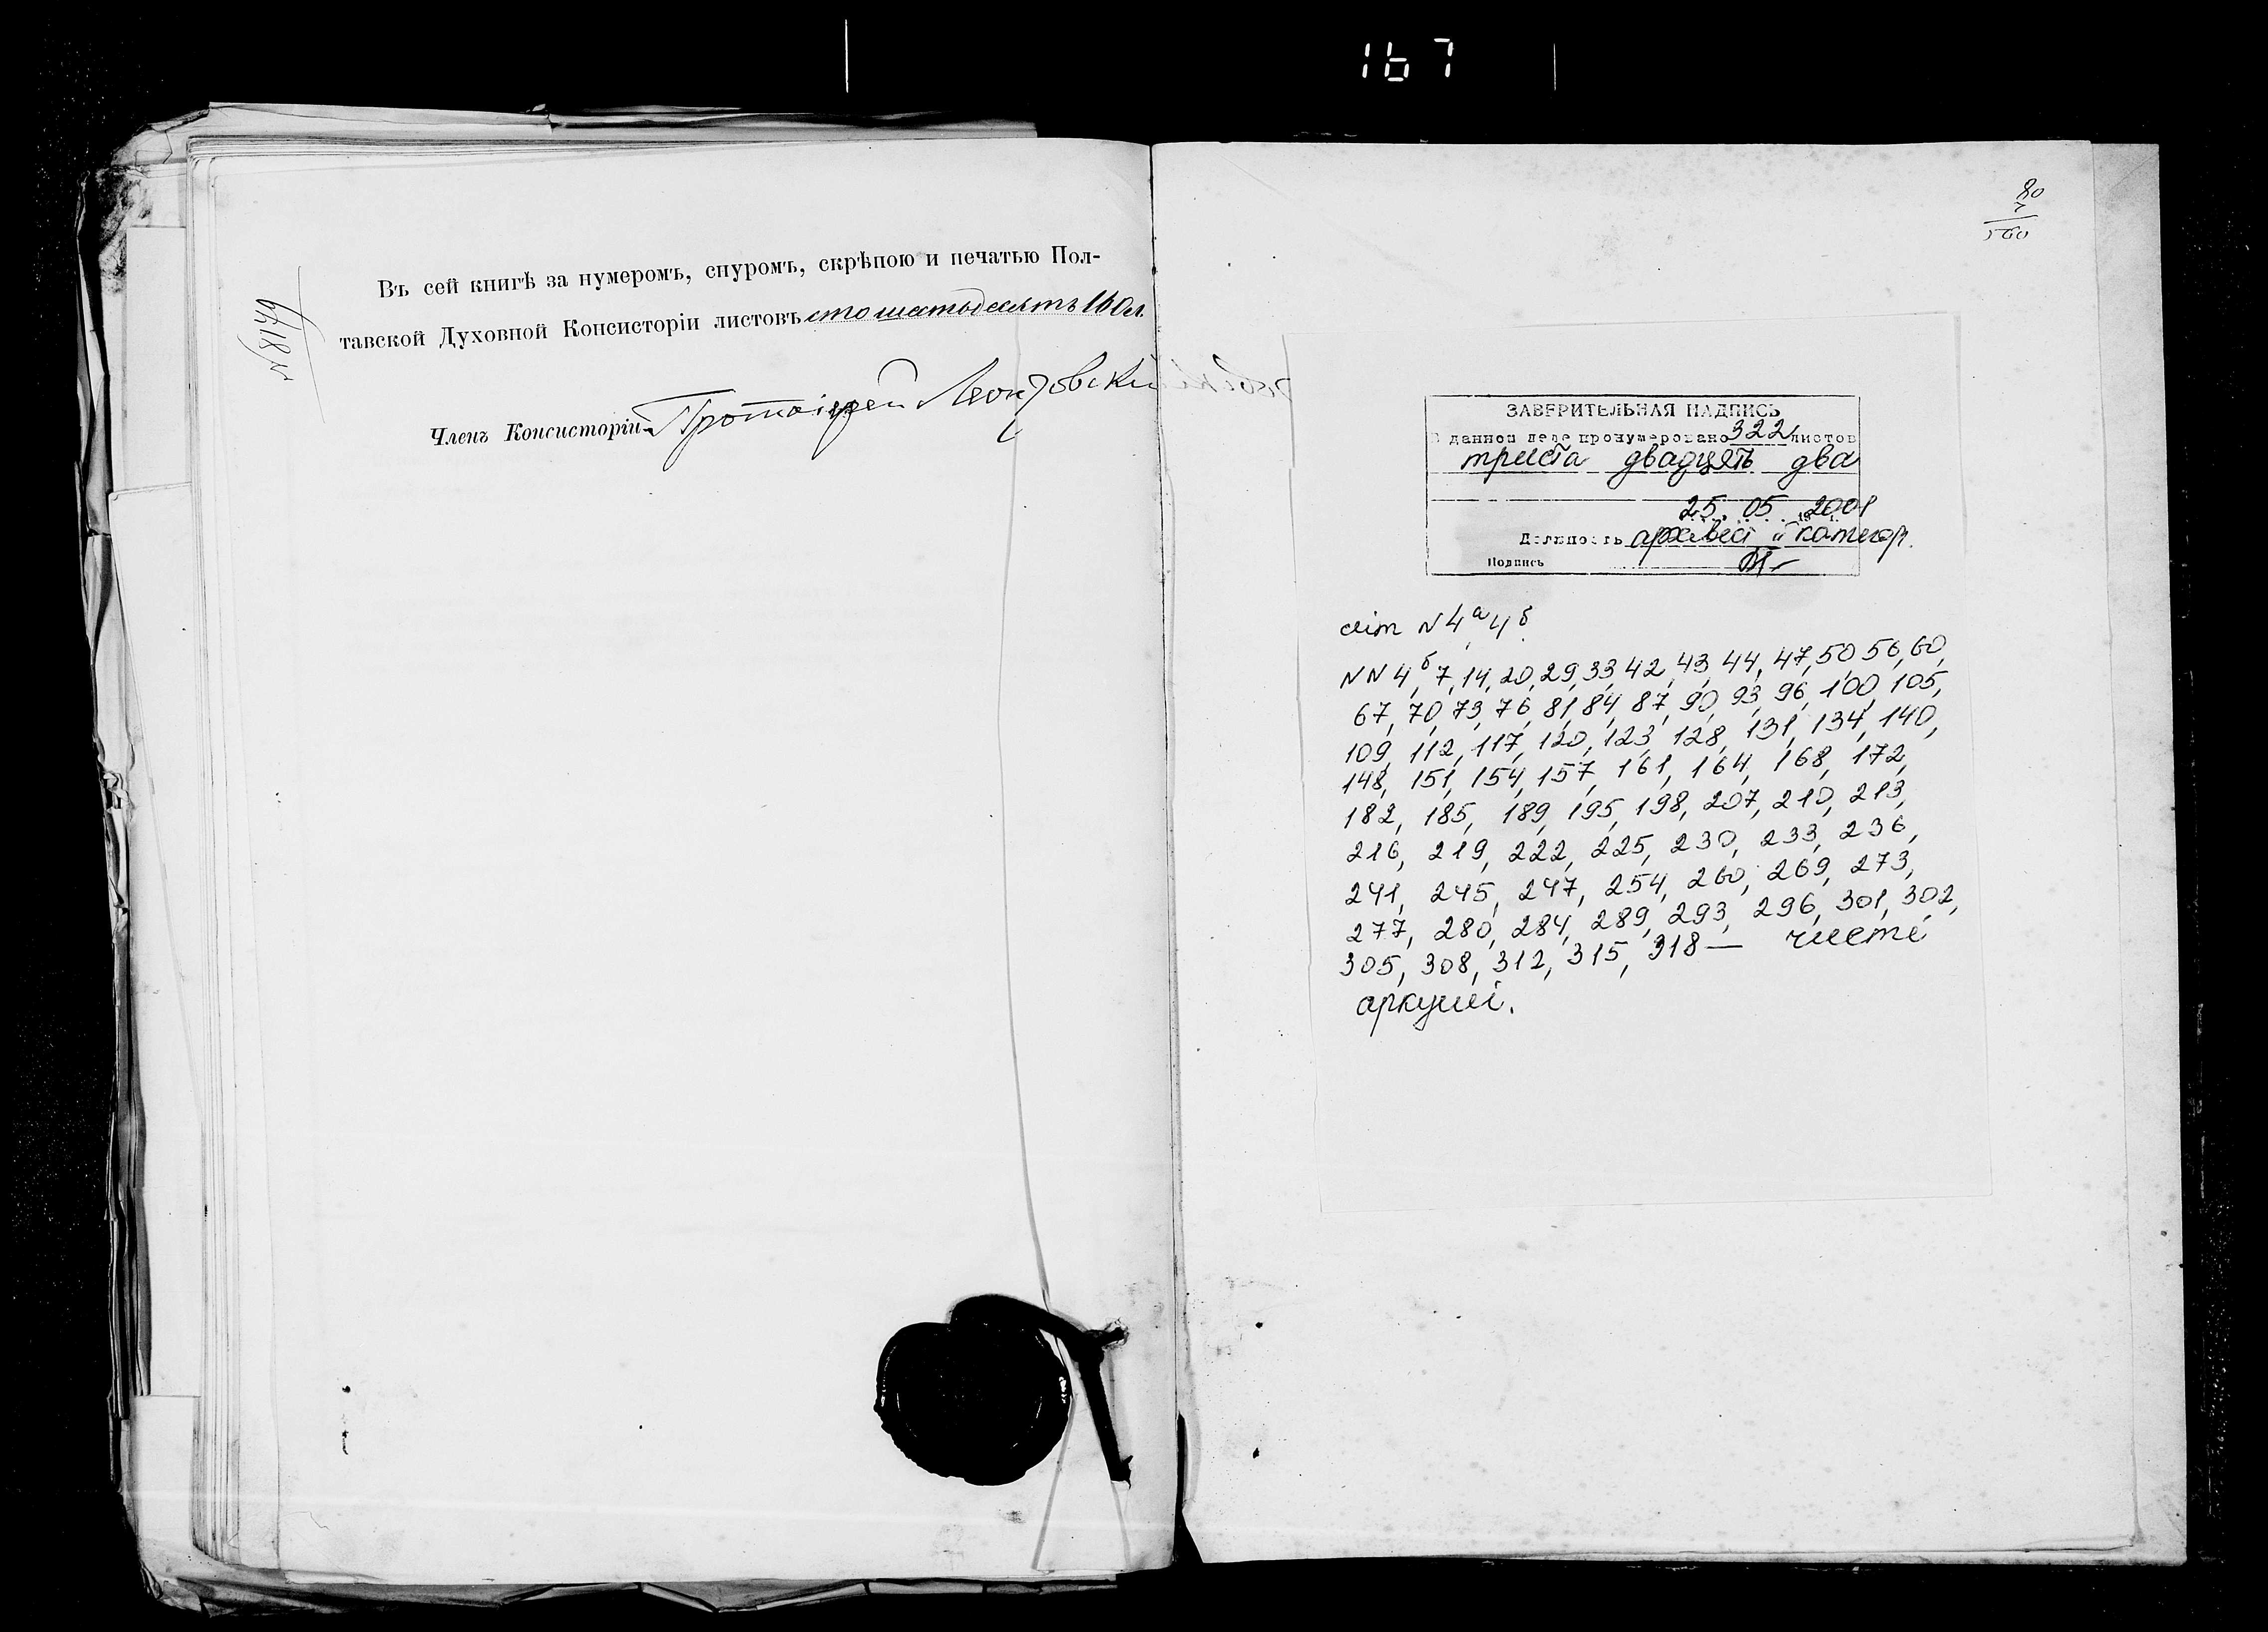 167
№ 8179
Въ сей книгѣ за нумеромъ, снуромъ, скрѣпою и печатью Пол-
тавской Духовной Консисторіи листовъ сто шестьдесятъ 160 л.
Членъ Консисторіи Протоіерей
80
7
560
ЗАВЕРИТЕЛЬНАЯ НАДПИСЬ
В данном деле пронумеровано 322 листов
триста двадцять два
25. 05 2001
Должность архівіст II категор.
Подпись
літ N 4а, 4б.
NN 4б, 7, 14, 20, 29, 33, 42, 43, 44, 47, 50 56, 60,
67, 70, 73, 76, 81, 84, 87, 90, 93, 96, 100, 105,
109, 112, 117, 120, 123, 128, 131, 134, 140,
148, 151, 154, 157, 161, 164, 168, 172,
182, 185, 189, 195, 198, 207, 210, 213,
216, 219, 222, 225, 230, 233, 236,
241, 245, 247, 254, 260, 269, 273,
277, 280, 284, 289, 293, 296, 301, 302,
305, 308, 312, 315, 318 — чисті
аркуші.